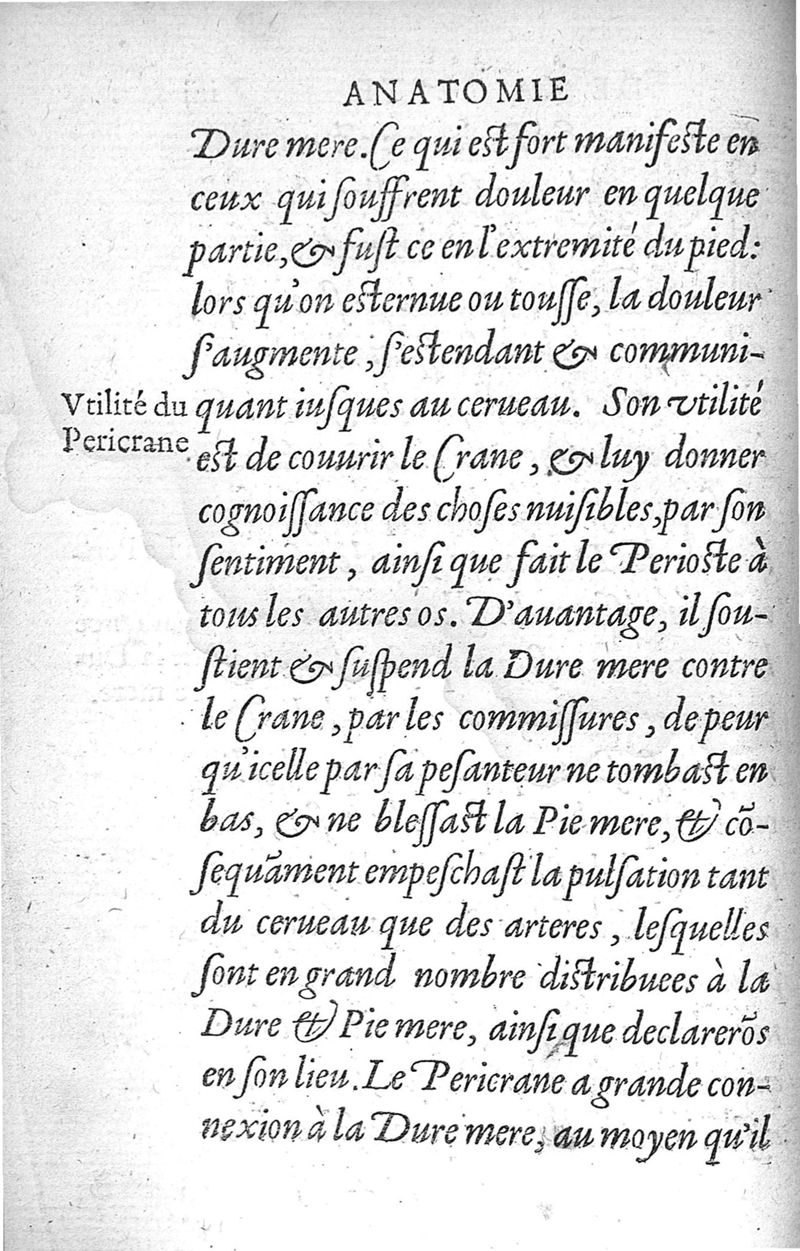 ANATOMIE
Dure mere. Ce qui est fort manifeste en
ceux qui ſouffrent douleur en quelque
partie, & fuſt ce en l'extremité du pied:
lors qu'on esternue ou touſſe, la douleur
ſ'augmente, ſ'estendant & communi-
Vtilité du
Pericrane
quant iuſques au cerueau. Son vtilité
est de couurir le Crane, & luy donner
cognoiſſance des choſes nuiſibles, par ſon
ſentiment, ainſi que fait le Perioste à
tous les autres os. D'auantage, il ſou-
ſtient & ſuſpend la Dure mere contre
le Crane, par les commiſſures, de peur
qu'icelle par ſa peſanteur ne tombast en
bas, & ne bleſſast la Pie mere, & cõ-
ſequãment empeſchaſt la pulſation tant
du cerueau que des arteres, leſquelles
ſont en grand nombre distribuees à la
Dure & Pie mere, ainſi que declarerõs
en ſon lieu. Le Pericrane a grande con-
nexion à la Dure mere, au moyen qu'il